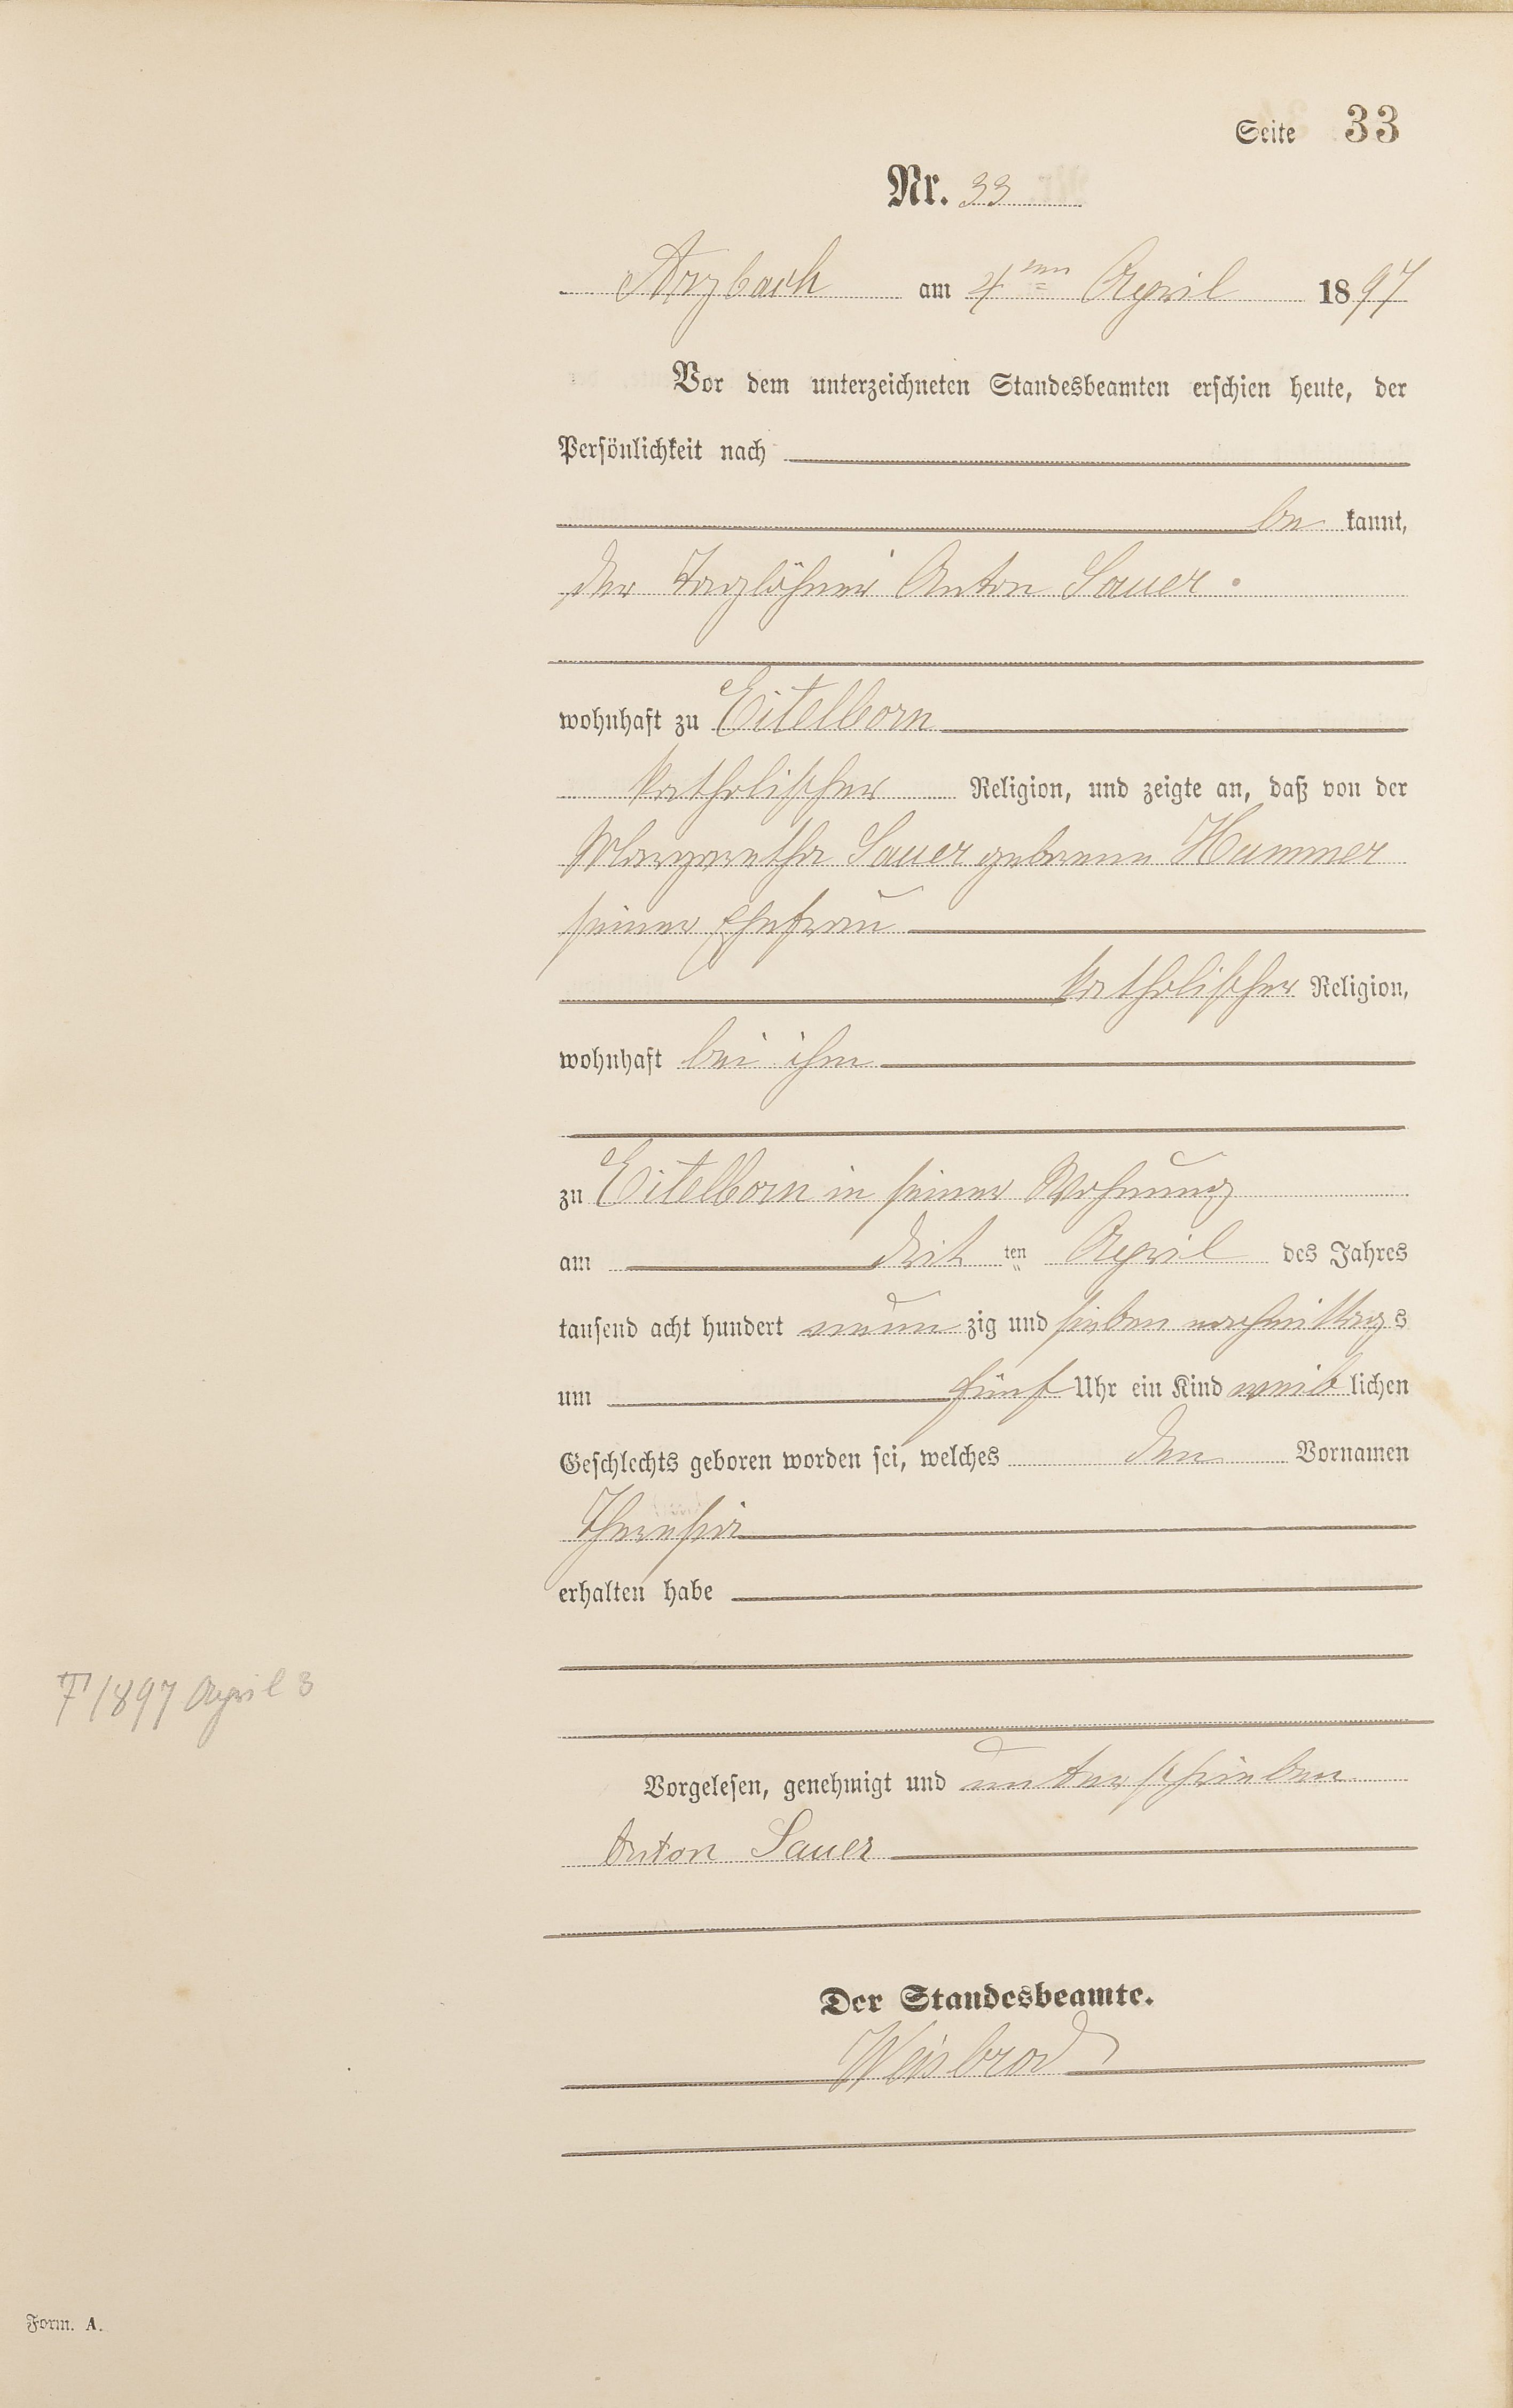 Seite 33
Nr. 33
Arzbach am 4ten April 1897
Vor dem unterzeichneten Standesbeamten erschien heute, der
Persönlichkeit nach
be kannt,
der Taglöhner Anton Sauer.
wohnhaft zu Eitelborn
katholischer Religion, und zeigte an, daß von der
Margaretha Sauer geborene Hummer
seiner Ehefrau
katholischer Religion,
wohnhaft bei ihm
zu Eitelborn in seiner Wohnung
am drit ten April des Jahres
tausend acht hundert neun zig und sieben nachmittags
um fünf Uhr ein Kind weib lichen
Geschlechts geboren worden sei, welches den Vornamen
Theresia
erhalten habe
† 1897 April 3
Vorgelesen, genehmigt und unterschrieben
Anton Sauer
Der Standesbeamte.
Weisbrod
Form. A.